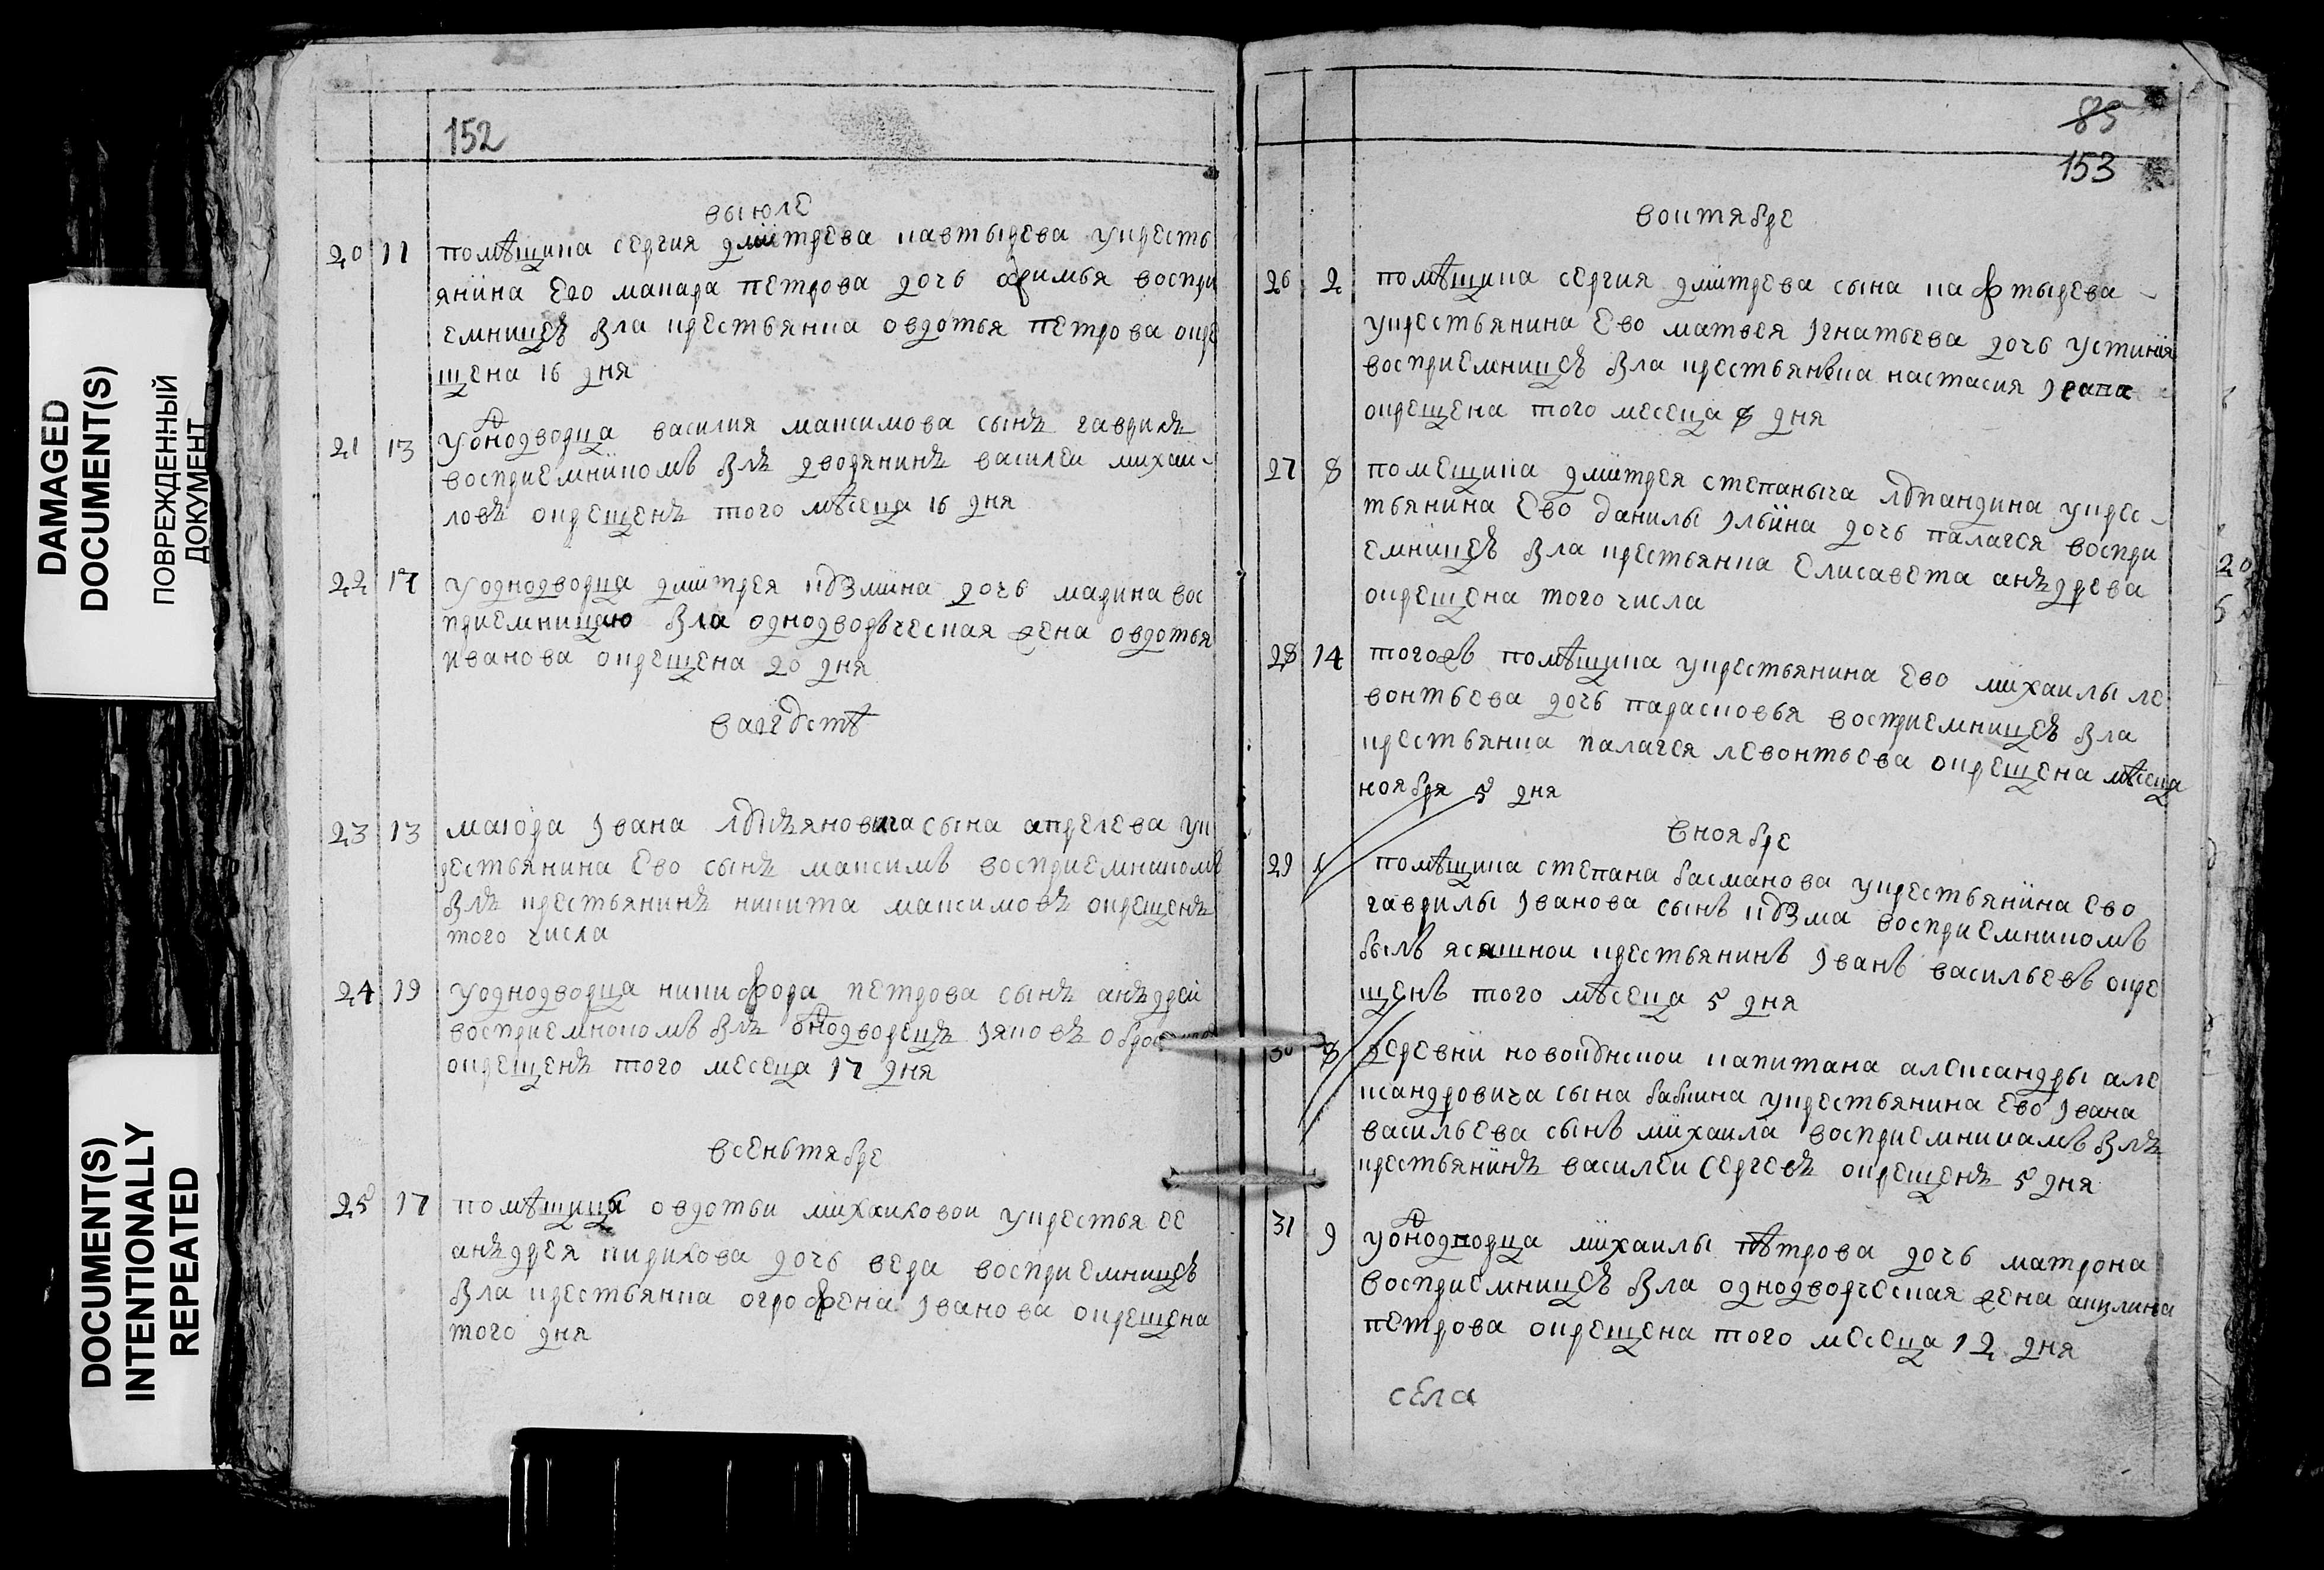 DAMAGED
DOCUMENT(S)
ПОВРЕЖДЕННЫЙ
ДОКУМЕНТ
DOCUMENT(S)
INTENTIONALLY
REPEATED
152
выюле
20 11 помѣщика сергия дмитрева кавтырева укресть
янина его макара петрова дочь офимья воспри
емницеѣ была крестьянка овдотья петрова окре
щена 16 дня
21 13 уоднодворца василия максимова сынъ гаврилъ
восприемникомъ былъ дворянинъ василеи михаи
ловъ окрещенъ того мѣсеца 16 дня
22 17 уоднодворца дмитрея кузмина дочь марина вос
приемницаю была однодворьческая жена овдотья
иванова окрещена 20 дня
вагустѣ
23 13 маиора ивана лукъяновича сына апрелева ук
рестьянина ево сынъ максимъ восприемникомъ
былъ крестьянинъ никита максимовъ окрещенъ
того числа
24 19 уоднодворца никифора петрова сынъ анъдреи
восприемнокомъ былъ однодворецъ яковъ
окрещенъ того месеца 17 дня
всеньтябре
25 17 помѣщицы овдотьи михаиловои укрестья ее
анъдрея кирилова дочь вера восприемницеѣ
была крестьянка огрофена иванова окрещена
того дня
85
153
воктябре
26 2 помѣщика сергия дмитрева сына кафтырева
укрестьянина ево матвея игнатьева дочь устиния
восприемницеѣ была крестьянька настасия
окрещена того месеца 8 дня
27 8 помещика дмитрея степаныча лупандина укрес
тьянина ево данилы ильина дочь палагея воспри
емницеѣ была крестьянка елисавета анъдрева
окрещена того числа
28 14 тогожъ помѣщика укрестьянина ево михаилы ле
вонтьева дочь парасковья восприемницеѣ была
крестьянка палагея левонтьева окрещена мѣсеца
ноября 5 дня
вноябре
29 1 помѣщика степана басманова укрестьянина ево
гаврилы иванова сынъ кузма восприемникомъ
былъ ясашнои крестьянинъ иванъ васильевъ окре
щенъ того мѣсеца 5 дня
30 3 деревни капитана александры але
ксандровича сына бабкина укрестьянина ево ивана
васильева сынъ михаила восприемникамъ былъ
крестьянинъ василеи сергевъ окрещенъ 5 дня
31 9 уоднодворца михаилы пѣтрова дочь матрона
восприемницеѣ была однодворческая жена акулина
петрова окрещена того месеца 12 дня
села